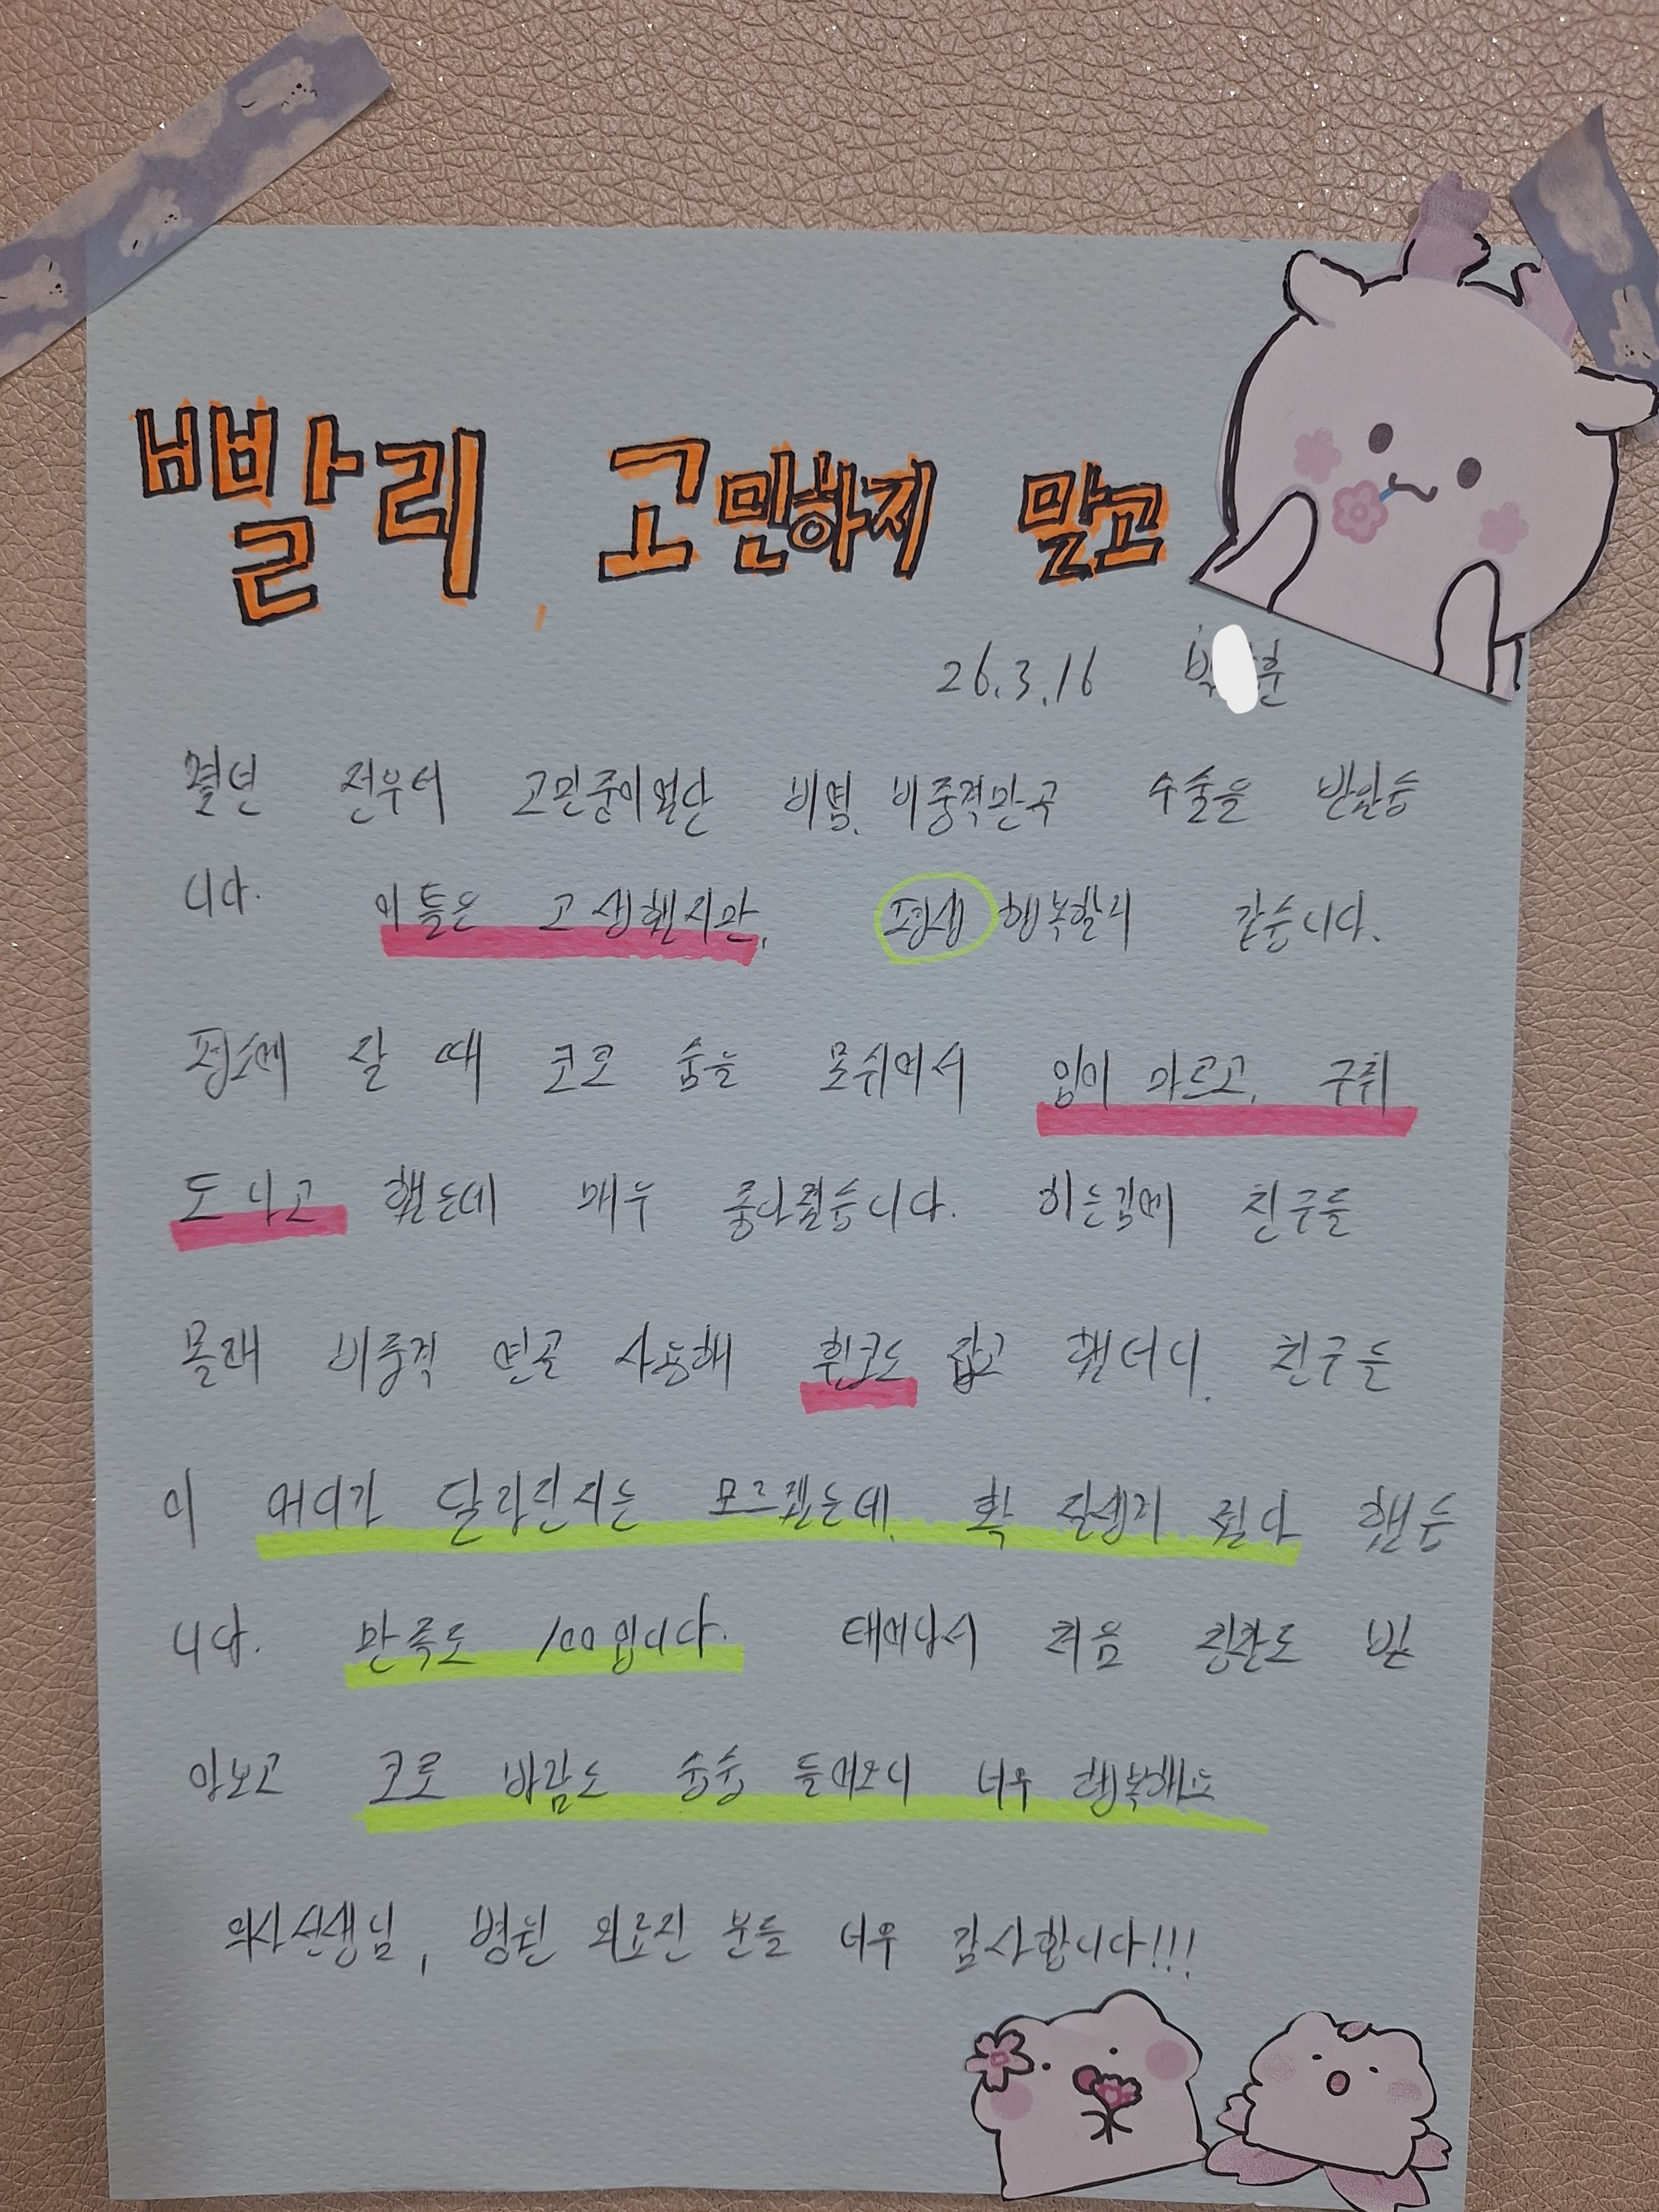 빨리, 고민하지 말고
26.3.16 박 훈
몇년 전부터 고민중이었단 비염, 비중격만곡 수술을 받았습
니다. 이틀은 고생했지만, 평생 행복할거 같습니다.
평소에 잘 때 코로 숨을 못쉬어서 입이 마르고, 구취
도 나고 했는데 매우 좋아졌습니다. 하는김에 친구들
몰래 비중격 연골 사용해 휜코도 잡고 했더니, 친구들
이 어디가 달라진지는 모르겠는데, 확 잘생겨 졌다 했습
니다. 만족도 100입니다. 태어나서 처음 칭찬도 받
아보고 코로 바람도 슝슝 들어오니 너무 행복해요
의사선생님, 병원 의료진 분들 너무 감사합니다!!!